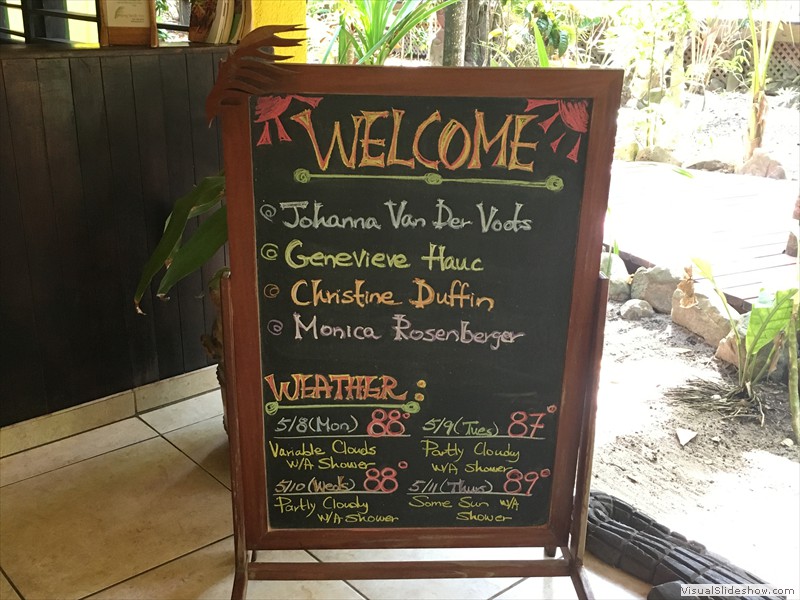 WELCOME
@ Johanna Van Der Voots
@ Genevieve Hauc
@ Christine Duffin
@ Monica Rosenberger
WEATHER:
5/8 (Mon) 88°
Variable Clouds
W/A Shower
5/9 (Tues) 87°
Partly Cloudy
W/A Shower
5/10 (Weds) 88°
Partly Cloudy
W/A Shower
5/11 (Thurs) 89°
Some Sun W/A
Shower
VisualSlideshow.com